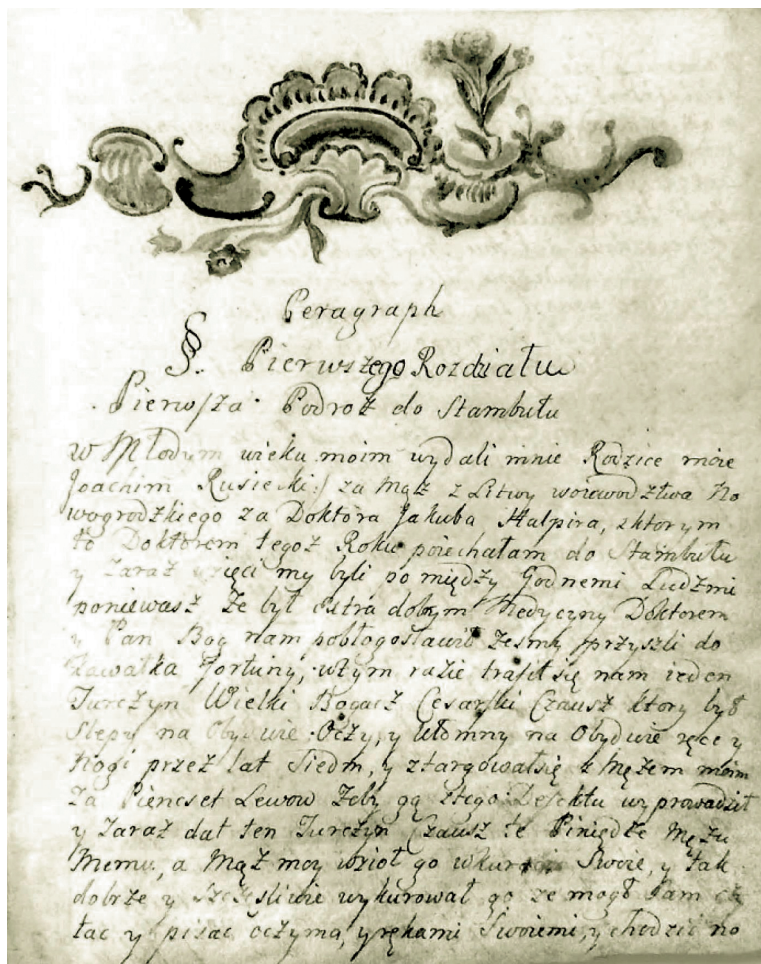 Peragraph
§. Pierwszego Rozdziału
Pierwsza Podroż do Stambułu
w Młodym wieku moim wydali mnie Rodzice moie
Joachim Rusiecki:/ za Mąż z Litwy woiewodztwa No
wogrodzkiego za Doktora Jakuba Halpira, zktorym
to Doktorem tegoż Roku poiechałam do Stambułu
y Zaraz wzięci my byli pomiędzy Godnemi Ludzmi
poniewasz Ze był extra dobrym Medycyny Doktorem
y Pan Bog nam pobłogosławił żesmy przyszli do
kawałka fortuny, wtym razie trafił się nam ieden
Turczyn Wielki Bogacz Cesarski Czausz ktory był
Slepy na Obydwie Oczy, y Ułomny na Obydwie ręce y
Nogi przez lat Siedm, y ztargował się z Mężem moim
Za Piencset Lewow Zeby go ztego Defektu wyprowadził
y Zaraz dał ten Turczyn Czausz te Piniędze Mężu
Memu, a Mąż moy wzioł go w Swoie, y tak
dobrze y Szczęsliwie wykurował go ze mogł Sam czy
tac y pisac oczyma, y rękami Swoiemi, y chodzić no